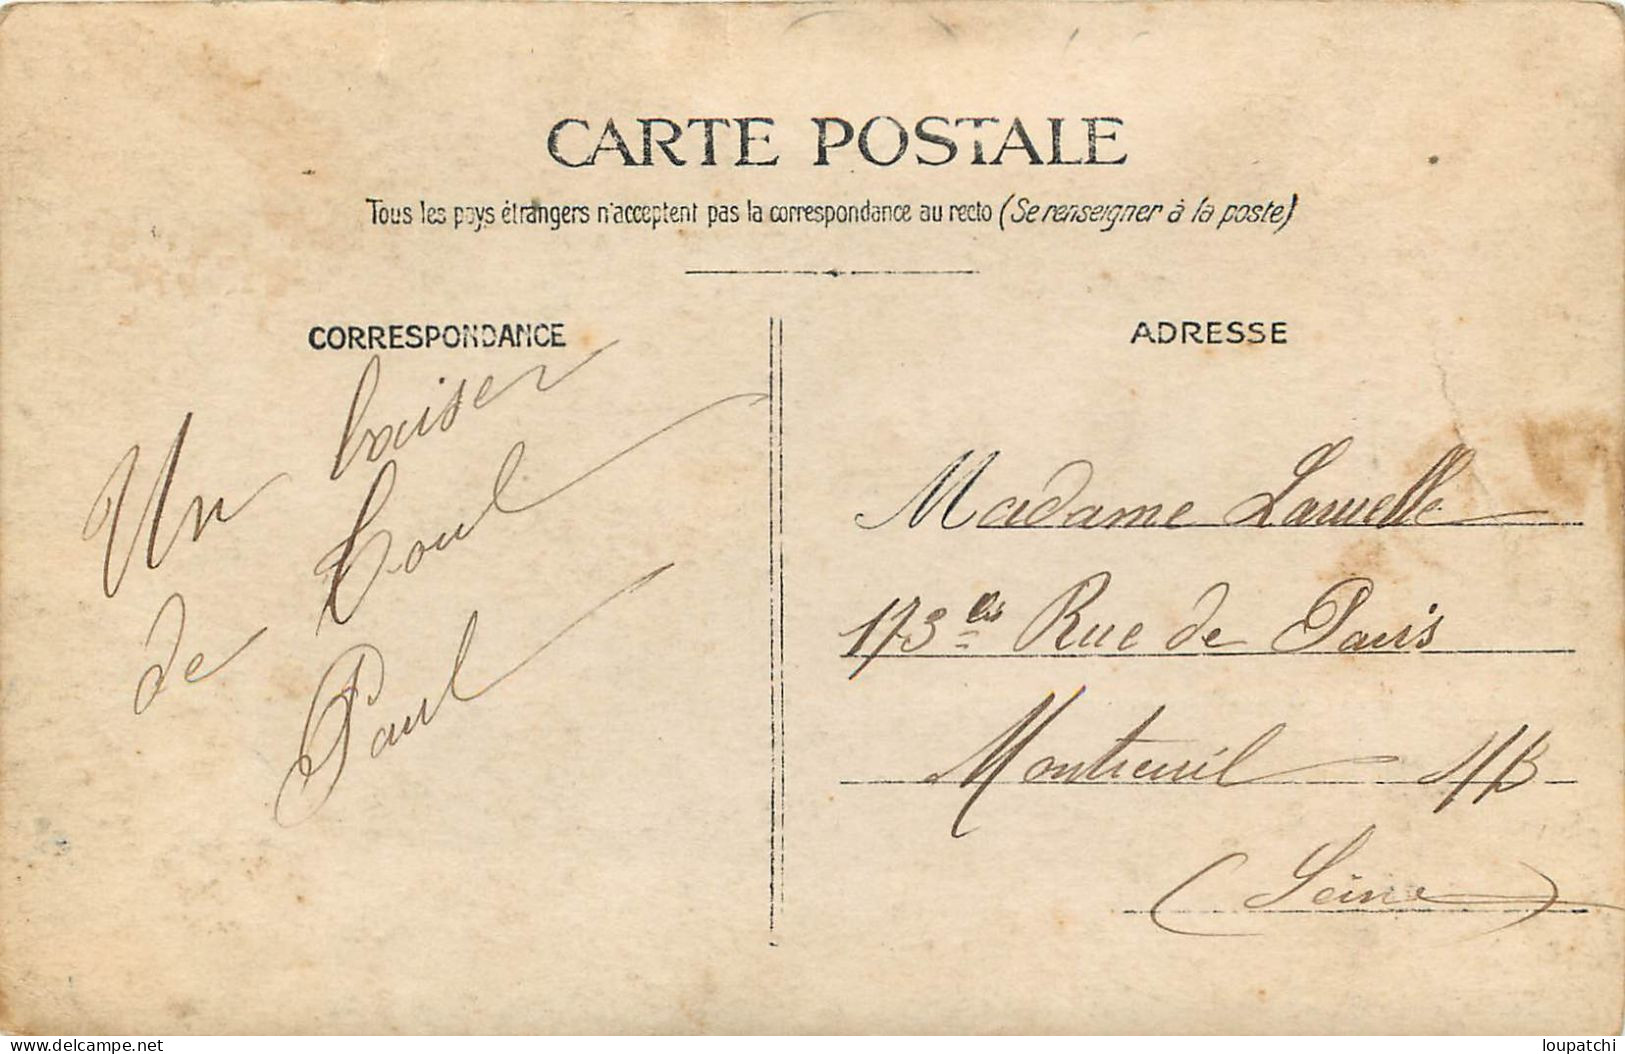 CARTE POSTALE
Tous les pays étrangers n'acceptent pas la correspondance au recto (Se renseigner à la poste)
CORRESPONDANCE
Un baiser
de Toul
Paul
ADRESSE
Madame
173 Rue de Paris
Montreuil s/B
(Seine)
www.delcampe.net
loupatchi